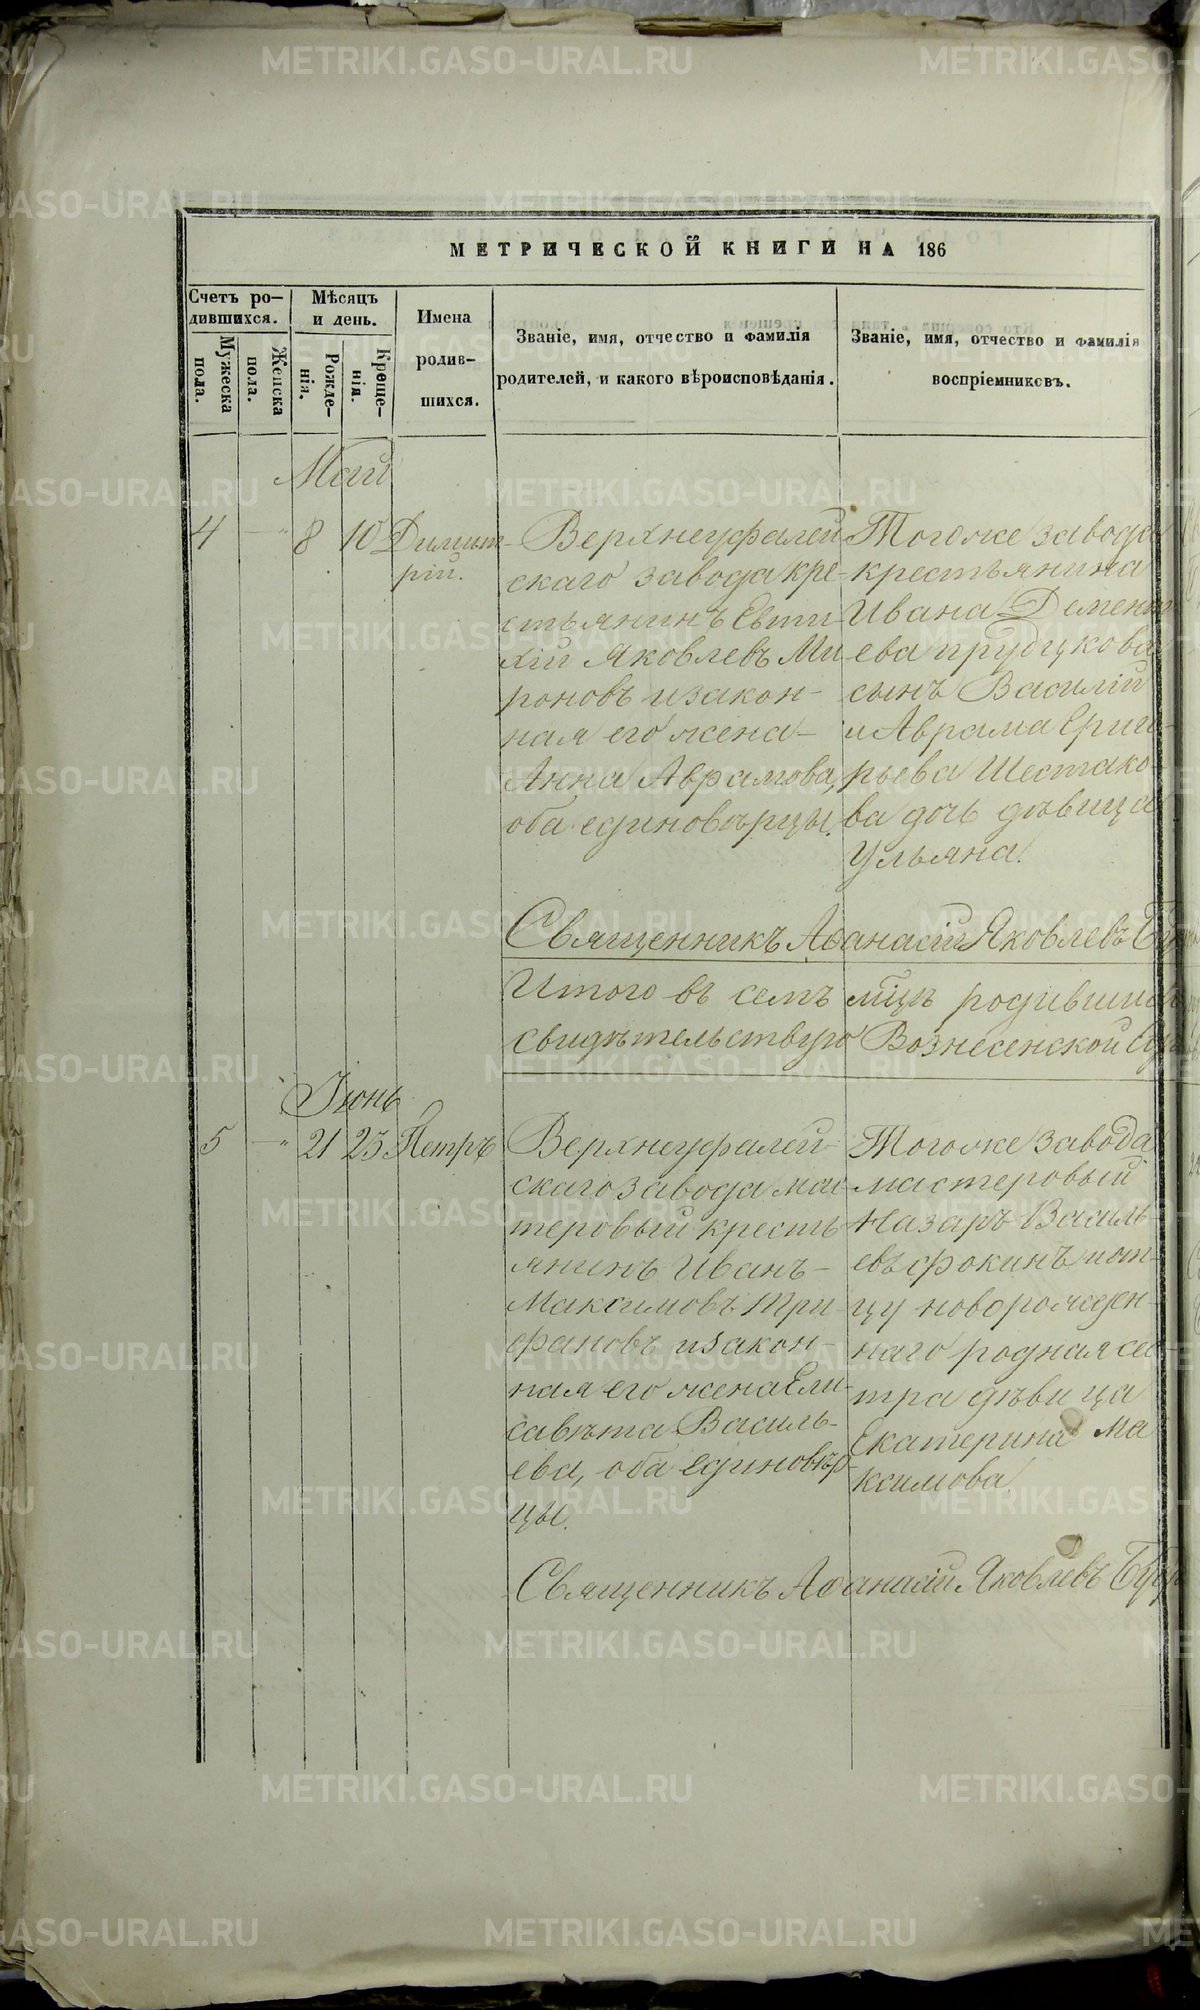 МЕТРИЧЕСКОЙ КНИГИ НА 186
Счетъ ро-
дившихся.
Мѣсяцъ
и день.
Имена
родив-
шихся.
Званіе, имя, отчество и фамилія
родителей, и какого вѣроисповѣданія.
Званіе, имя, отчество и фамилія
воспріемниковъ.
Мужеска
пола.
Женска
пола.
Рожде-
нія.
Креще-
нія.
Май
4 — " 8 10 Димит-
рій.
Верхнеуфалей
скаго завода кре-
стьянинъ Евти
хій Яковлевъ Ми
роновъ и закон-
ная его жена-
Анна Аврамова,
оба единовѣрцы.
Тогоже завода
крестьянина
Ивана Демент
ева Прудцкова
сынъ Василій
и Аврама Григо-
рьева Шестако-
ва дочь дѣвица
Ульяна.
Священникъ Аѳанасій Яковлевъ
Итого въ семъ мцѣ родившихъ
свидѣтельствую Вознесенской
Іюнь
5 — " 21 25 Петръ
Верхнеуфалей-
скаго завода мас-
теровый кресть
янинъ Иванъ-
Максимовъ Три-
фановъ и закон-
ная его жена Ели-
савѣта Василь-
ева, оба единовѣр-
цы.
Тогоже завода
мастеровый
Назаръ Василь-
евъ Фокинъ и от-
цу новорожден-
наго родная сес-
тра дѣвица
Екатерина Ма
ксимова.
Священникъ Аѳанасій Яковлевъ
METRIKI.GASO-URAL.RU